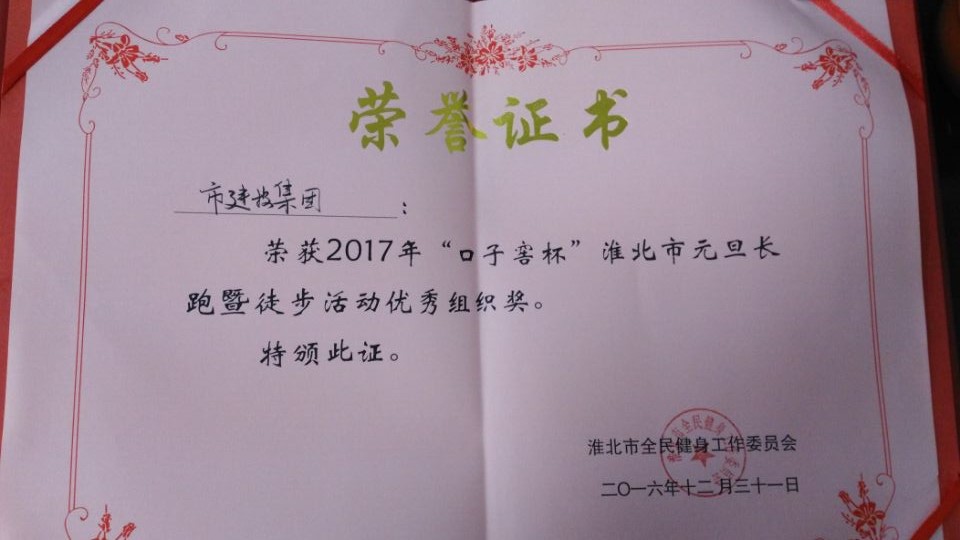 荣誉证书
市建投集团：
荣获2017年“口子窖杯”淮北市元旦长
跑暨徒步活动优秀组织奖。
特颁此证。
淮北市全民健身工作委员会
二〇一六年十二月三十一日